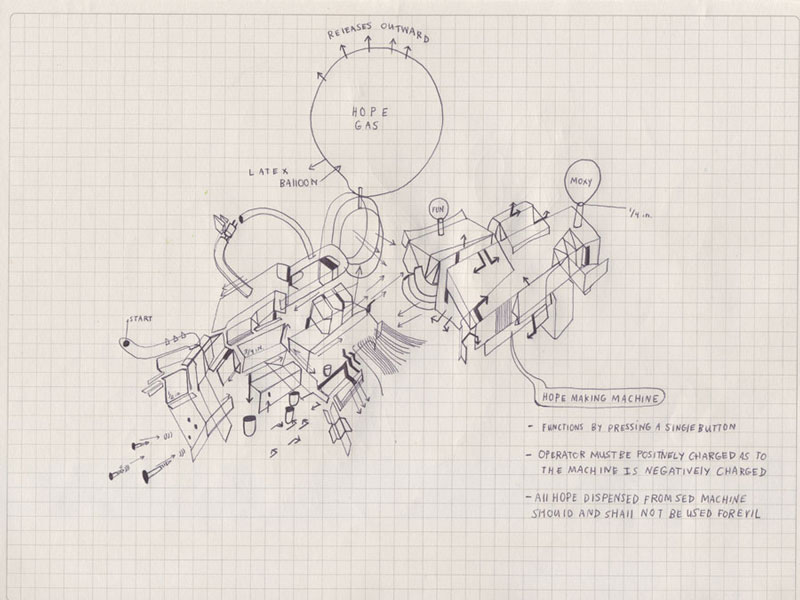 RELEASES OUTWARD
HOPE
GAS
LATEX
BALLOON
MOXY
FUN
1/4 in.
START
3/4 in.
HOPE MAKING MACHINE
- FUNCTIONS BY PRESSING A SINGLE BUTTON
- OPERATOR MUST BE POSITIVELY CHARGED AS TO
THE MACHINE IS NEGATIVELY CHARGED
- All HOPE DISPENSED FROM SED MACHINE
SHOULD AND SHALL NOT BE USED FOR EVIL